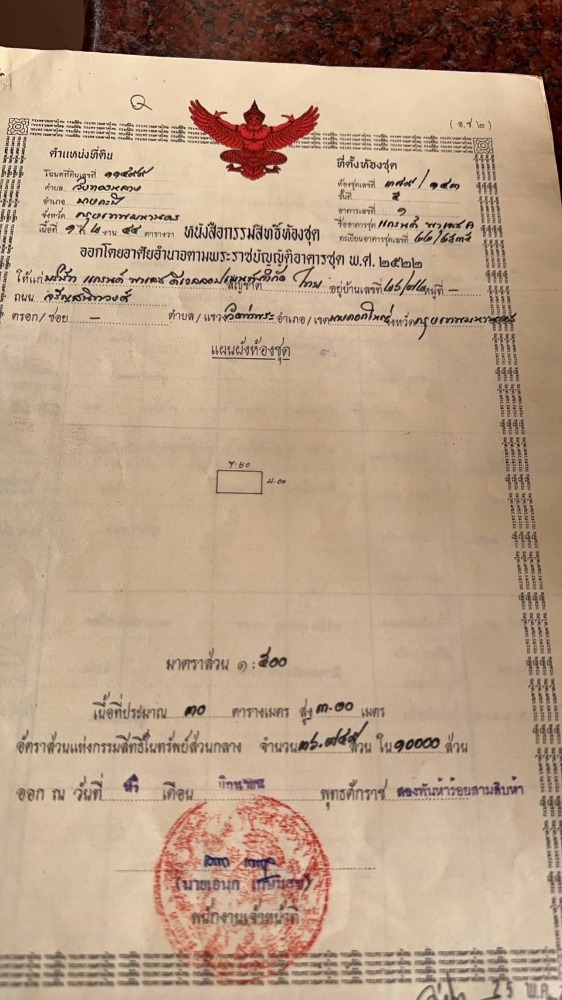 (อ.ช.๒)
ตำแหน่งที่ดิน
โฉนดที่ดินเลขที่ ๑๑๕๙๙
ตำบล วังทองหลาง
อำเภอ บางกะปิ
จังหวัด กรุงเทพมหานคร
เนื้อที่ ๑ ไร่ ๒ งาน ๕๔ ตารางวา
ที่ตั้งห้องชุด
ห้องชุดเลขที่ ๓๗๙/๑๔๓
ชั้นที่ ๕
อาคารเลขที่ ๑
ชื่ออาคารชุด แกรนด์ พาเลซ
ทะเบียนอาคารชุดเลขที่ ๒๒/๒๕๓๕
หนังสือกรรมสิทธิ์ห้องชุด
ออกโดยอาศัยอำนาจตามพระราชบัญญัติอาคารชุด พ.ศ. ๒๕๒๒
ให้แก่ บริษัท แกรนด์ พาเลซ ดีเวลลอปเมนท์ จำกัด สัญชาติ ไทย อยู่บ้านเลขที่ หมู่ที่ –
ถนน จรัญสนิทวงศ์
ตรอก/ซอย – ตำบล/แขวง วัดท่าพระ อำเภอ/เขต บางกอกใหญ่ จังหวัด กรุงเทพมหานคร
แผนผังห้องชุด
๗.๕๐
๔.๐๐
มาตราส่วน ๑ : ๕๐๐
เนื้อที่ประมาณ ๓๐ ตารางเมตร สูง ๓.๐๐ เมตร
อัตราส่วนแห่งกรรมสิทธิ์ในทรัพย์ส่วนกลาง จำนวน ๓๖.๙๔๕ ส่วน ใน ๑๐๐๐๐ ส่วน
ออก ณ วันที่ เดือน มิถุนายน พุทธศักราช สองพันห้าร้อยสามสิบห้า
(นายเอนก
พนักงานเจ้าหน้าที่
25 พ.ค.